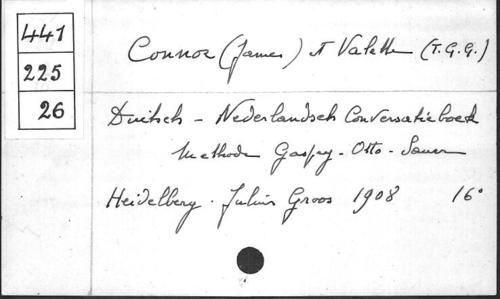 441
225
26
Connor (James) et Valette (T.G.G.)
Duitsch - Nederlandsch Conversatieboek
Methode Gaspey - Otto - Sauer
Heidelberg. Julius Groos 1908 16°